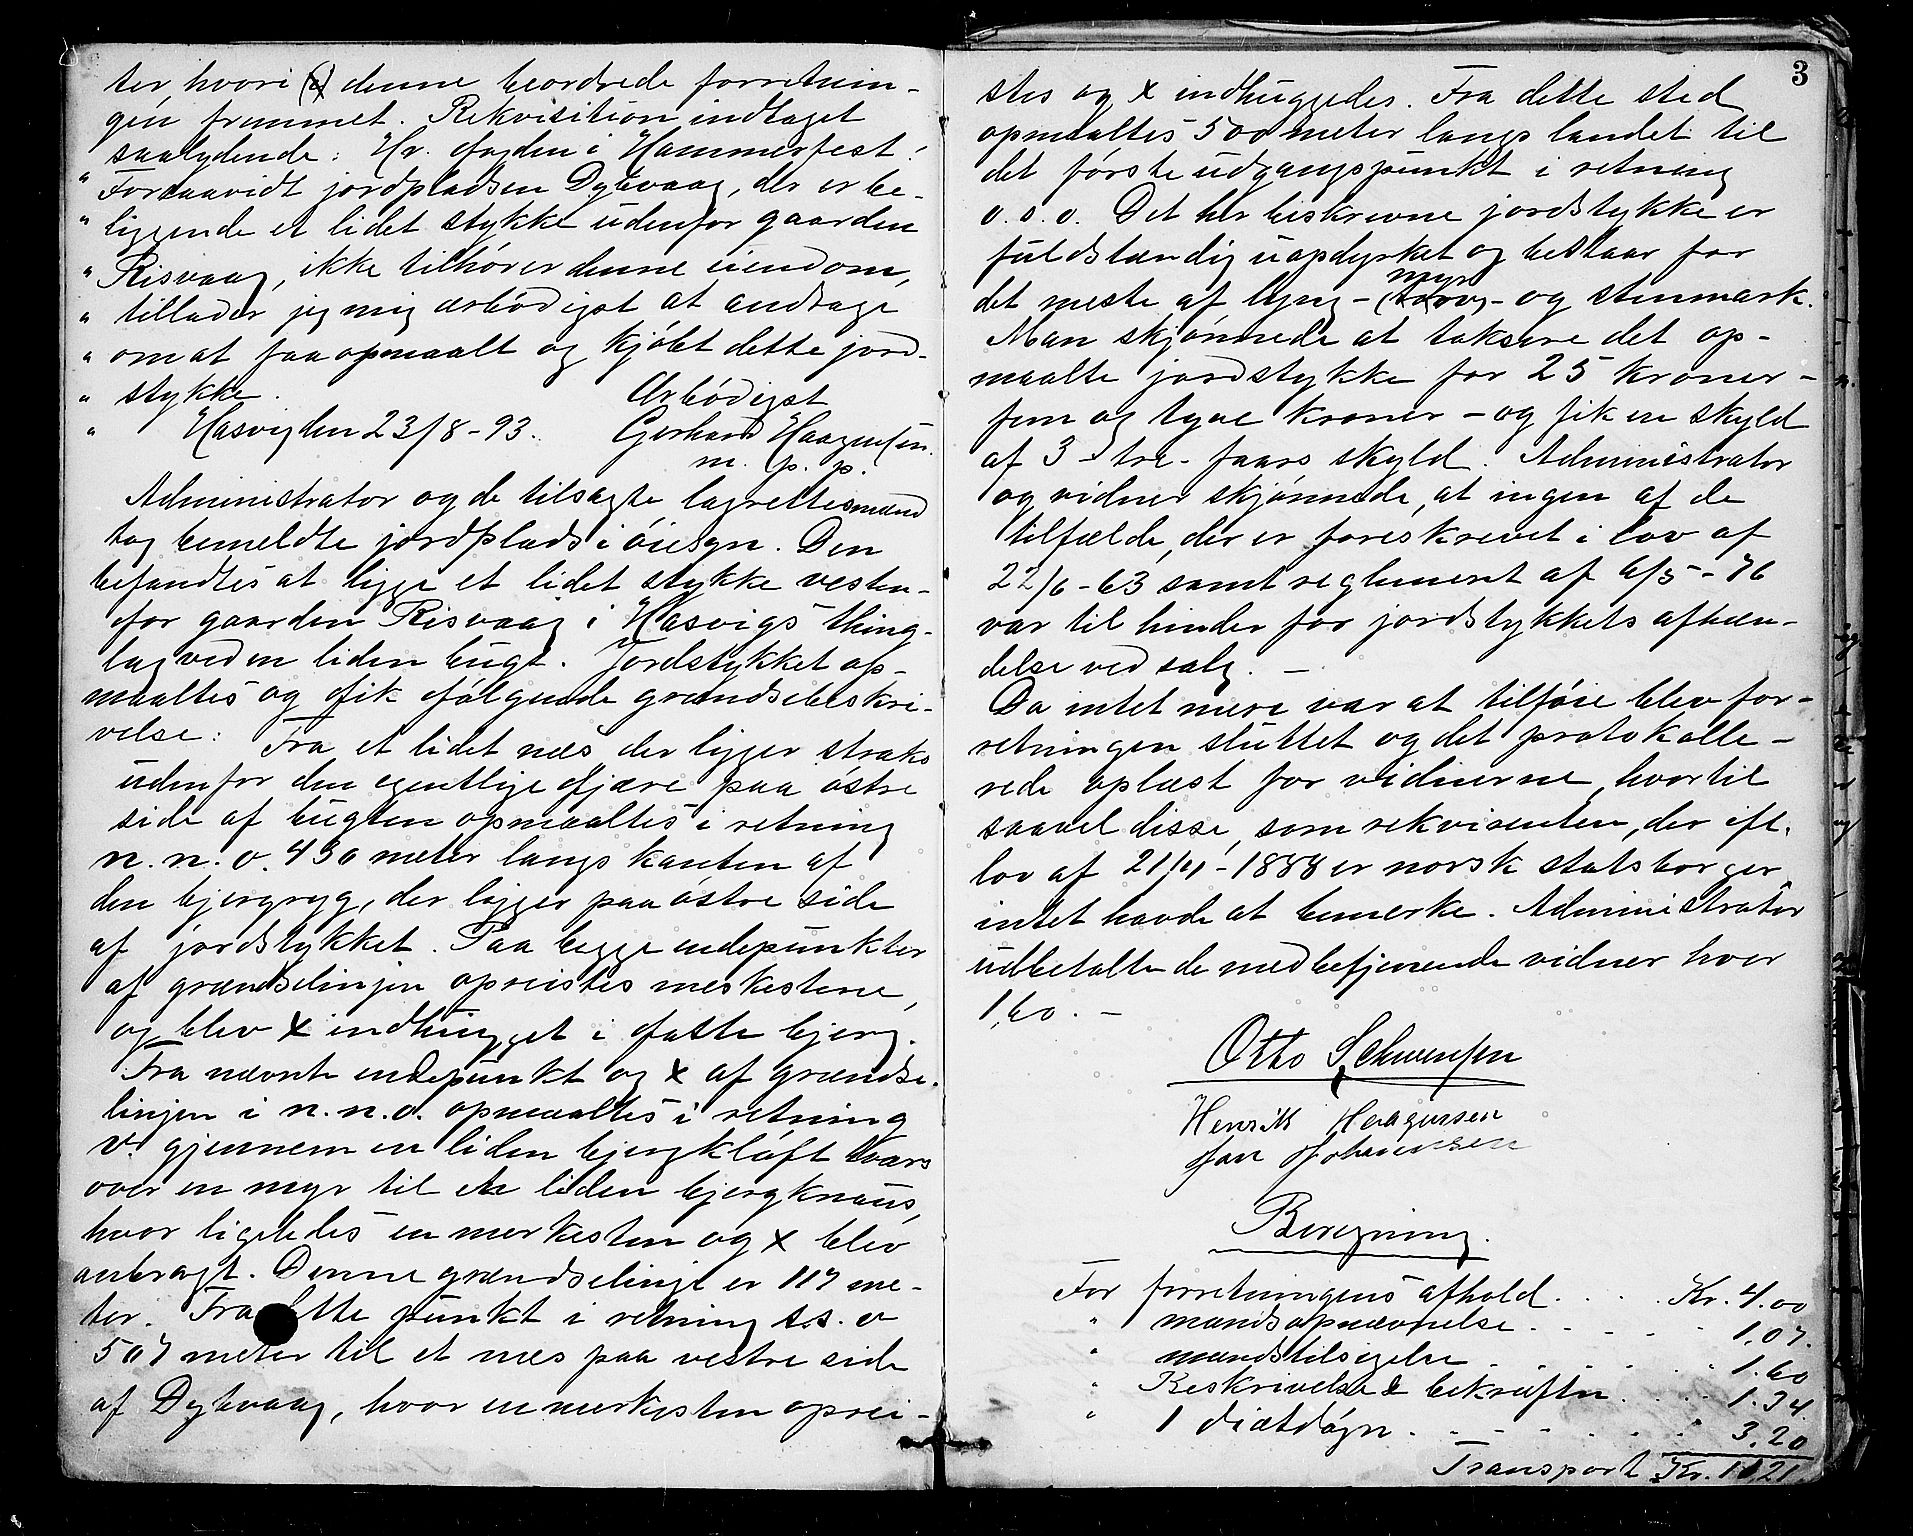 ter, hvori denne beordrede forretnin-
gen fremmet. Rekvisition indtaget
saalydende: Hr. fogden i Hammerfest!
" Forsaavidt jordpladsen Dybvaag, der er be-
" liggende et lidet stykke udenfor gaarden
" Risvaag, ikke tilhører denne eiendom,
" tillader jeg mig ærbødigst at andrage
" om at faa opmaalt og kjøbt dette jord-
" stykke. Ærbødigst
" Hasvig den 23/8-93. Gerhard Haagensen.
m. p. p.
Administrator og de tilsagte lagrettesmænd
tog bemeldte jordplads i øiesyn. Den
befandtes at ligge et lidet stykke vesten-
for gaarden Risvaag i Hasvigs thing-
lag ved en liden bugt. Jordstykket op-
maaltes og fik følgende grændsebeskri-
velse: Fra et lidet næs der ligger straks
udenfor den egentlige fjære paa østre
side af bugten opmaaltes i retning
n. n. o. 430 meter langs kanten af
den bjergryg, der ligger paa østre side
af jordstykket. Paa begge endepunkter
af grændselinjen opreistes merkestene,
og blev x indhugget i faste bjerg.
Fra nævnte endepunkt og x af grændse-
linjen i n. n. o. opmaaltes i retning
v. gjennem en liden bjergkløft tværs
over en myr til en liden bjergknaus,
hvor ligeledes en merkesten og x blev
anbragt. Denne grændselinje er 117 me-
ter. Fra dette punkt i retning s.s. v
507 meter til et næs paa vestre side
af Dybvaag, hvor en merkesten oprei-
3
stes og x indhuggedes. Fra dette sted
opmaaltes 500 meter langs landet til
det første udgangspunkt i retning
o. s. o. Det her beskrevne jordstykke er
fuldstændig uopdyrket og bestaar for
myr
det meste af lyng- (torv)- og stenmark.
Man skjønnede at taksere det op-
maalte jordstykke for 25 kroner -
fem og tyve kroner - og fik en skyld
af 3 - tre - faars skyld. Administrator
og vidner skjønnede, at ingen af de
tilfælde, der er foreskrevet i lov af
22/6-63 samt reglement af 6/5-76
var til hinder for jordstykkets afhæn-
delse ved salg. -
Da intet mere var at tilføie blev for-
retningen sluttet og det protokolle-
rede oplæst for vidnerne, hvortil
saavel disse, som rekvirenten, der ift.
lov af 21/4-1888 er norsk statsborger
intet havde at bemerke. Administrator
udbetalte de medbetjenende vidner hver
1,60. -
Otto
Henrik Haagensen
Johannesen
Beregning.
For forretningens afhold. . . . . Kr. 4.00
" mandsopnævnelse. . . . . . 1,07.
" mændstilsigelse . . . . . . 1.60
" Beskrivelse & bekræften. . . . . 1.34.
" 1 diætdøgn. . . . . . . " 3,20
Transport Kr. 11.21